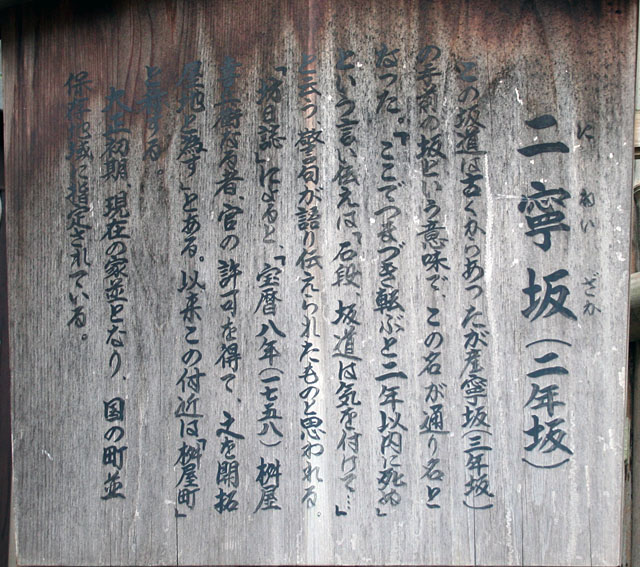 二寧坂（二年坂）
に ねい ざか
この坂道は古くからあったが産寧坂（三年坂）
の手前の坂という意味で、この名が通り名と
なった。「ここでつまづき転ぶと二年以内に死ぬ」
という言い伝えは、「石段、坂道は気を付けて…」
と云う警句が語り伝えられたものと思われる。
「坊目誌」によると、「宝暦八年（一七五八）桝屋
なる者、官の許可を得て、之を開拓
宅地と為す」とある。以来この付近は「桝屋町」
と称する。
大正初期、現在の家並となり、国の町並
保存地域に指定されている。